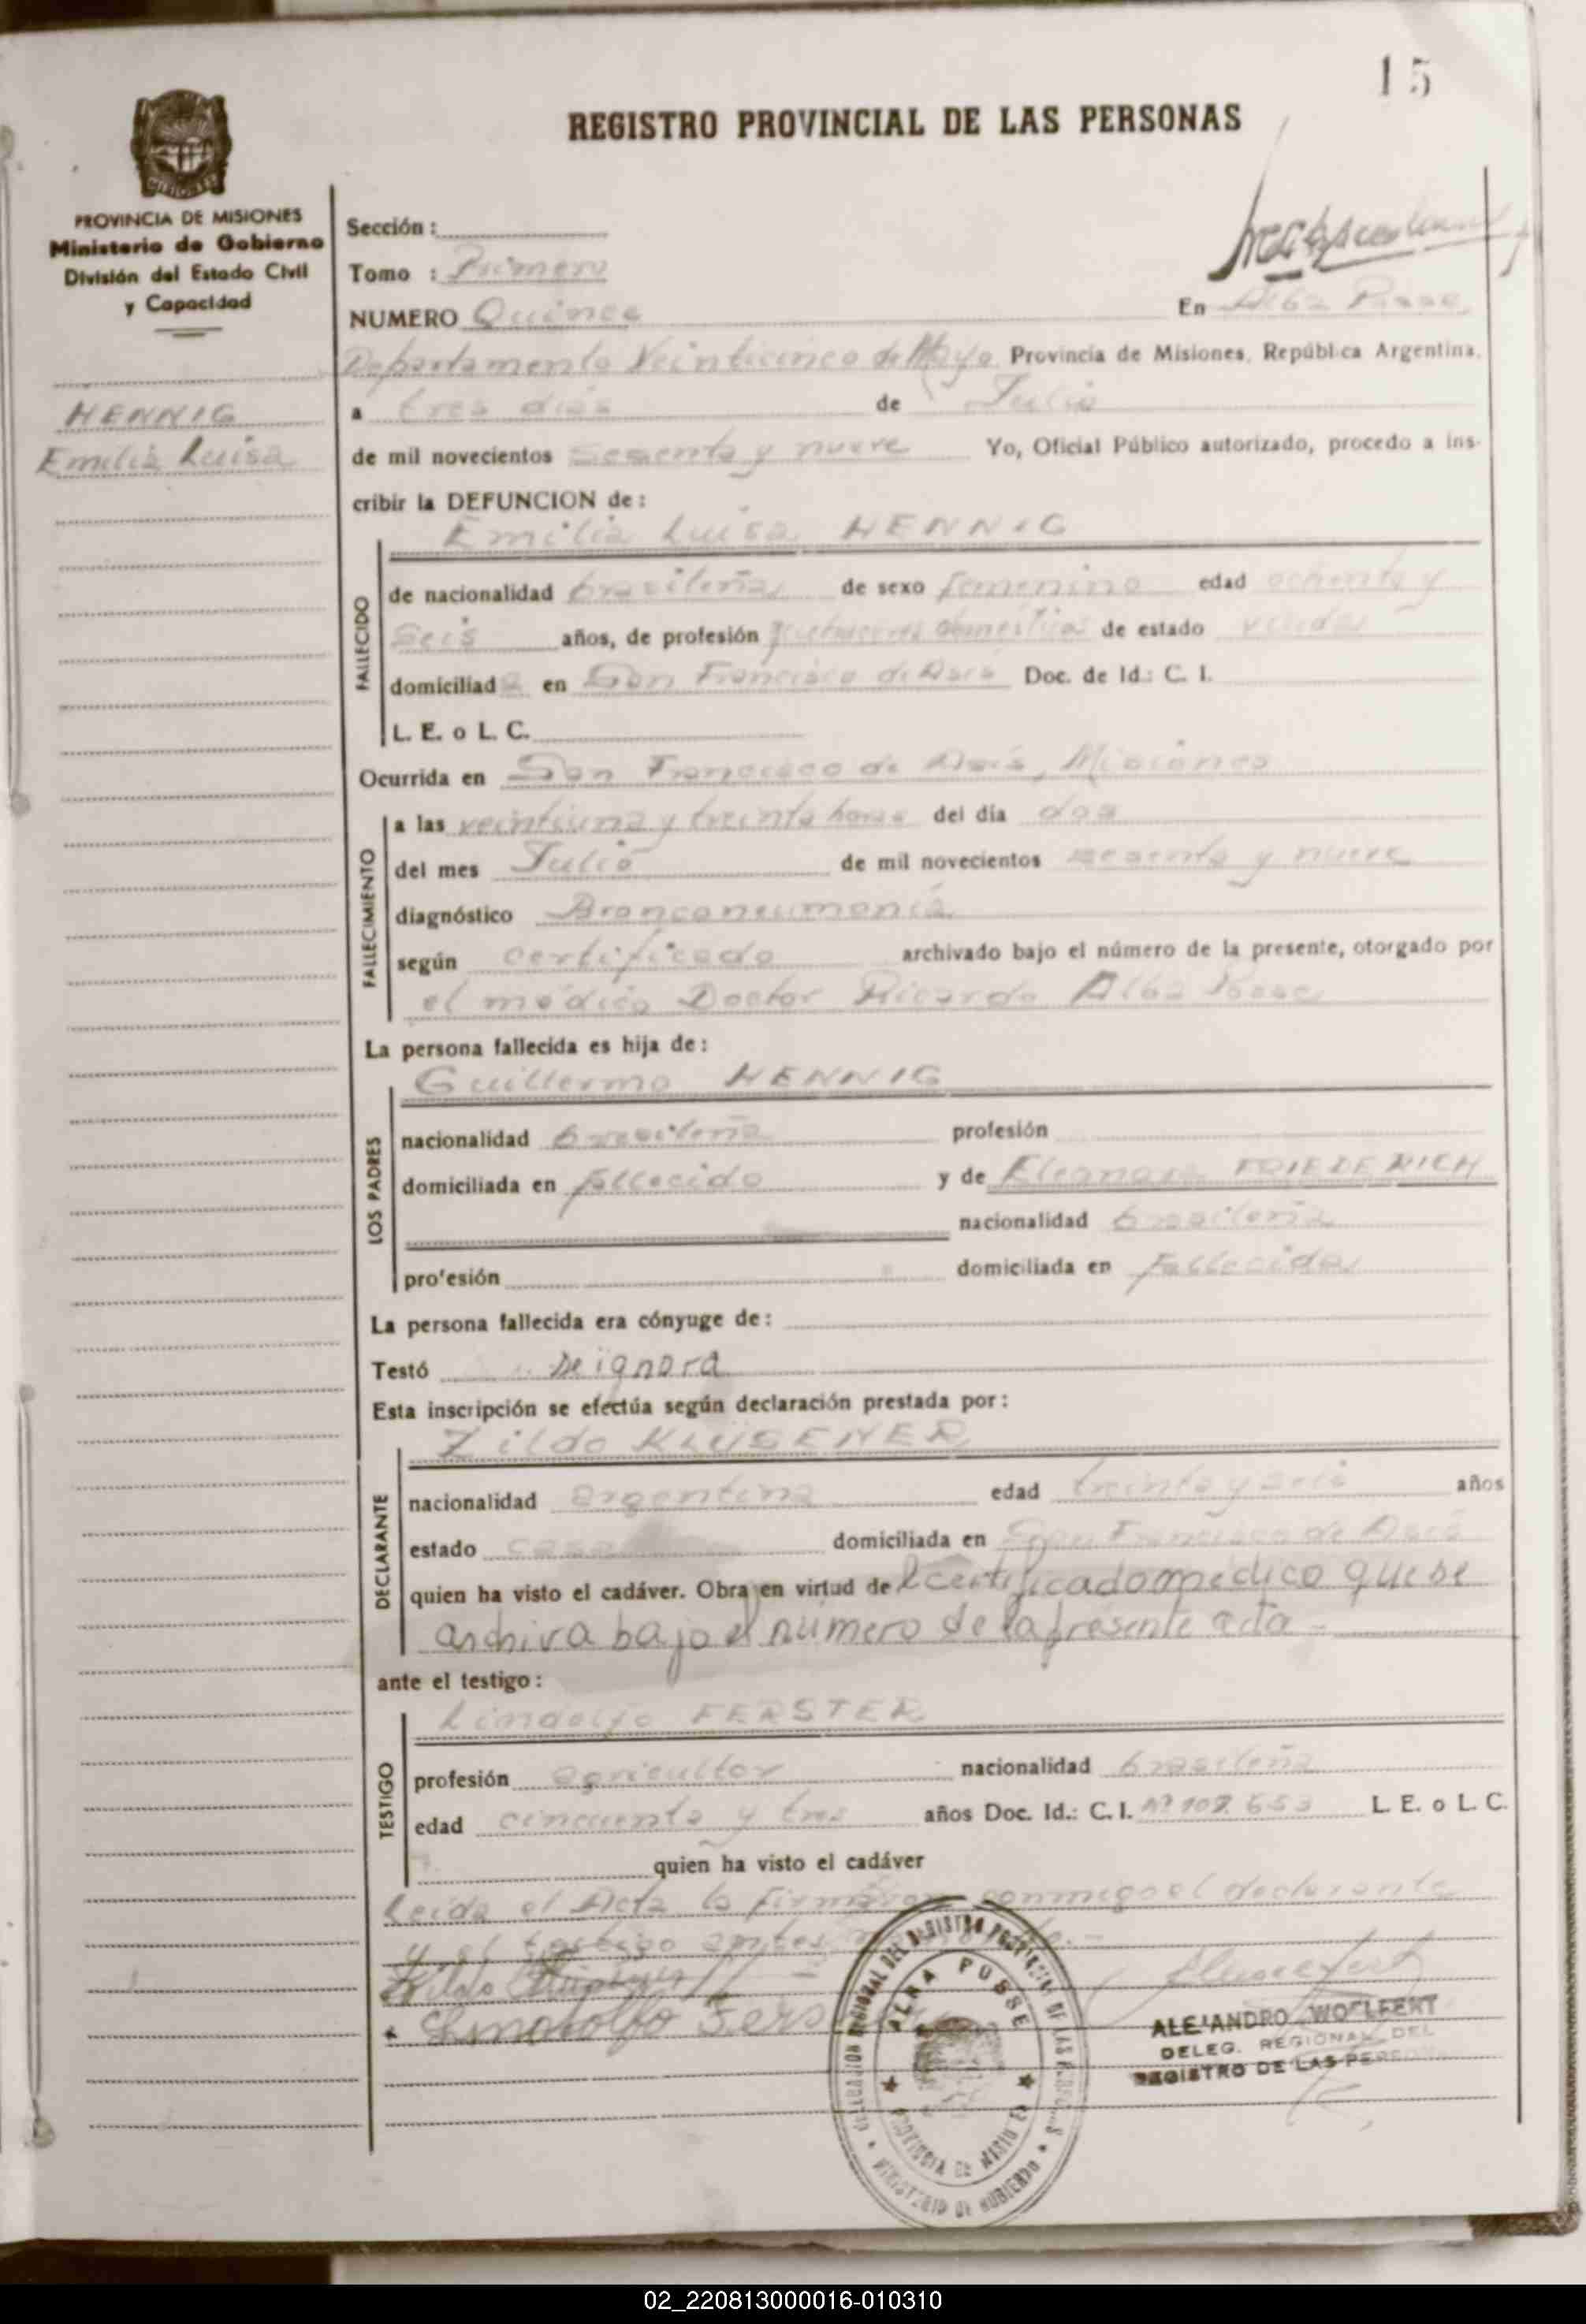 15
REGISTRO PROVINCIAL DE LAS PERSONAS
PROVINCIA DE MISIONES
Ministerio de Gobierno
División del Estado Civil
y Capacidad
HENNIG
Emilia Luisa
Sección :
Tomo : Primero
NUMERO Quince En Alba Posse,
Departamento Veinticinco de Mayo Provincia de Misiones, República Argentina,
a tres dias de Julio
de mil novecientos sesenta y nueve Yo, Oficial Público autorizado, procedo a ins-
cribir la DEFUNCION de :
Emilia Luisa HENNIG
FALLECIDO
de nacionalidad brasileña de sexo femenino edad ochenta y
seis años, de profesión domésticos de estado viuda
domiciliada en San Francisco de Asis Doc. de Id.: C. I.
L. E. o L. C.
Ocurrida en San Francisco de Asis, Misiones
FALLECIMIENTO
a las veintiuna y treinta horas del día dos
del mes Julio de mil novecientos sesenta y nueve
diagnóstico Bronconeumonia
según certificado archivado bajo el número de la presente, otorgado por
el médico Doctor Ricardo Alba Posse
La persona fallecida es hija de :
Guillermo HENNIG
LOS PADRES
nacionalidad brasileña profesión
domiciliada en fallecido y de Eleonora FRIEDERICH
nacionalidad brasileña
profesión domiciliada en fallecida
La persona fallecida era cónyuge de :
Testó se ignora
Esta inscripción se efectúa según declaración prestada por :
Zildo KLUSENER
DECLARANTE
nacionalidad argentina edad treinta y seis años
estado casa domiciliada en San Francisco de Asis
quien ha visto el cadáver. Obra en virtud de l certificado medico que se
archiva bajo el número de la presente acta -
ante el testigo :
Lindolfo FERSTER
TESTIGO
profesión agricultor nacionalidad brasileña
edad cincuenta y tres años Doc. Id.: C. I. Nº 107.653 L. E. o L. C.
quien ha visto el cadáver
Leida el Acta la firmaron conmigo el declarante
y el testigo antes
Zildo
Lindolfo Fers
ALBA POSSE
PROVINCIA DE MISIONES
MINISTERIO DE GOBIERNO
ALEJANDRO WOELFERT
DELEG. REGIONAL DEL
REGISTRO DE LAS PERSONAS
02_220813000016-010310